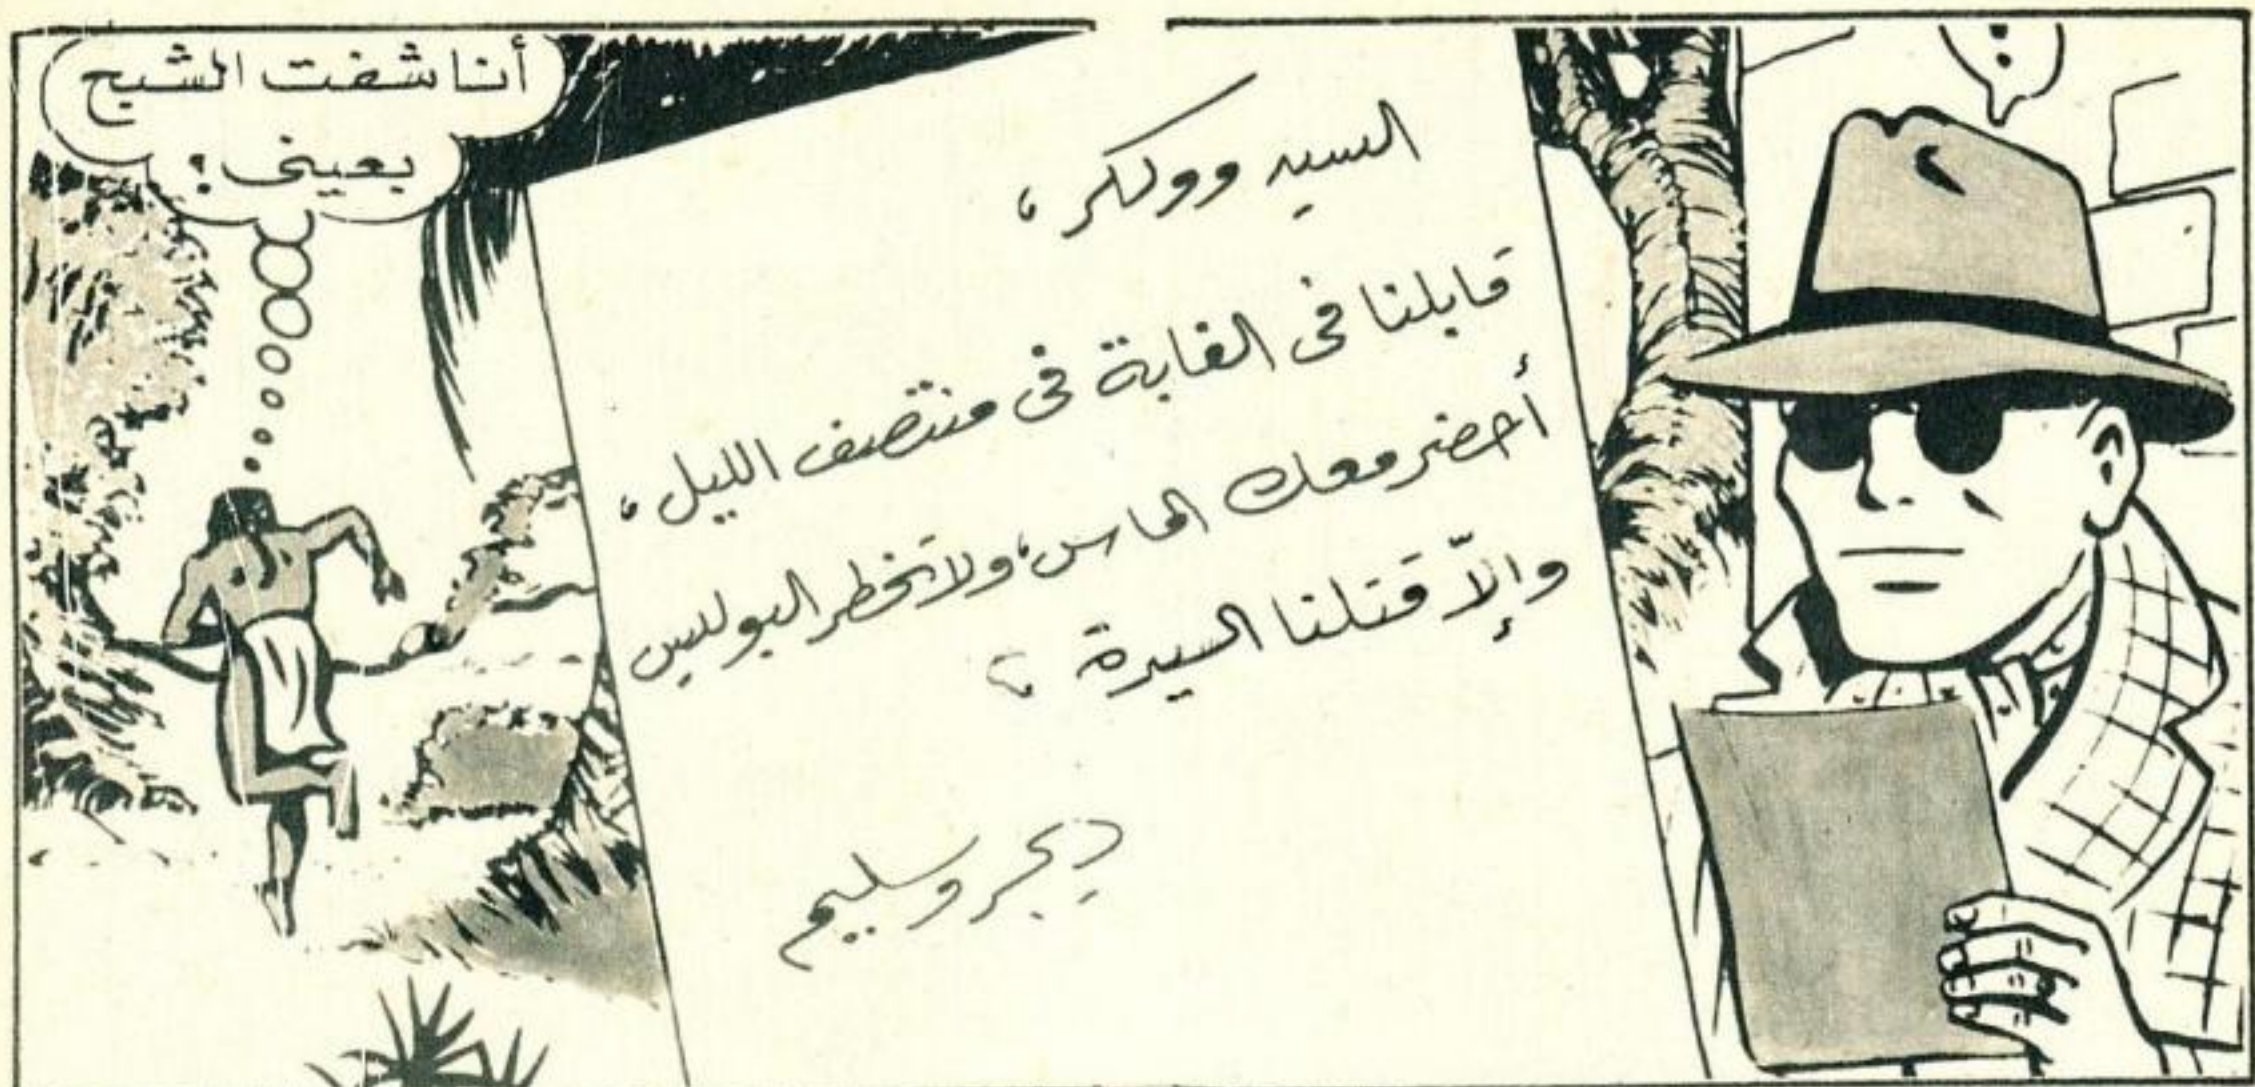 :
السيد ووكر،
قابلنا فى الغابة فى منتصف الليل،
أحضر معك الماس، ولا تخطر البوليس
وإلاّ قتلنا السيدة،
ديجر وسليم
أنا شفت الشبح
بعينى؟